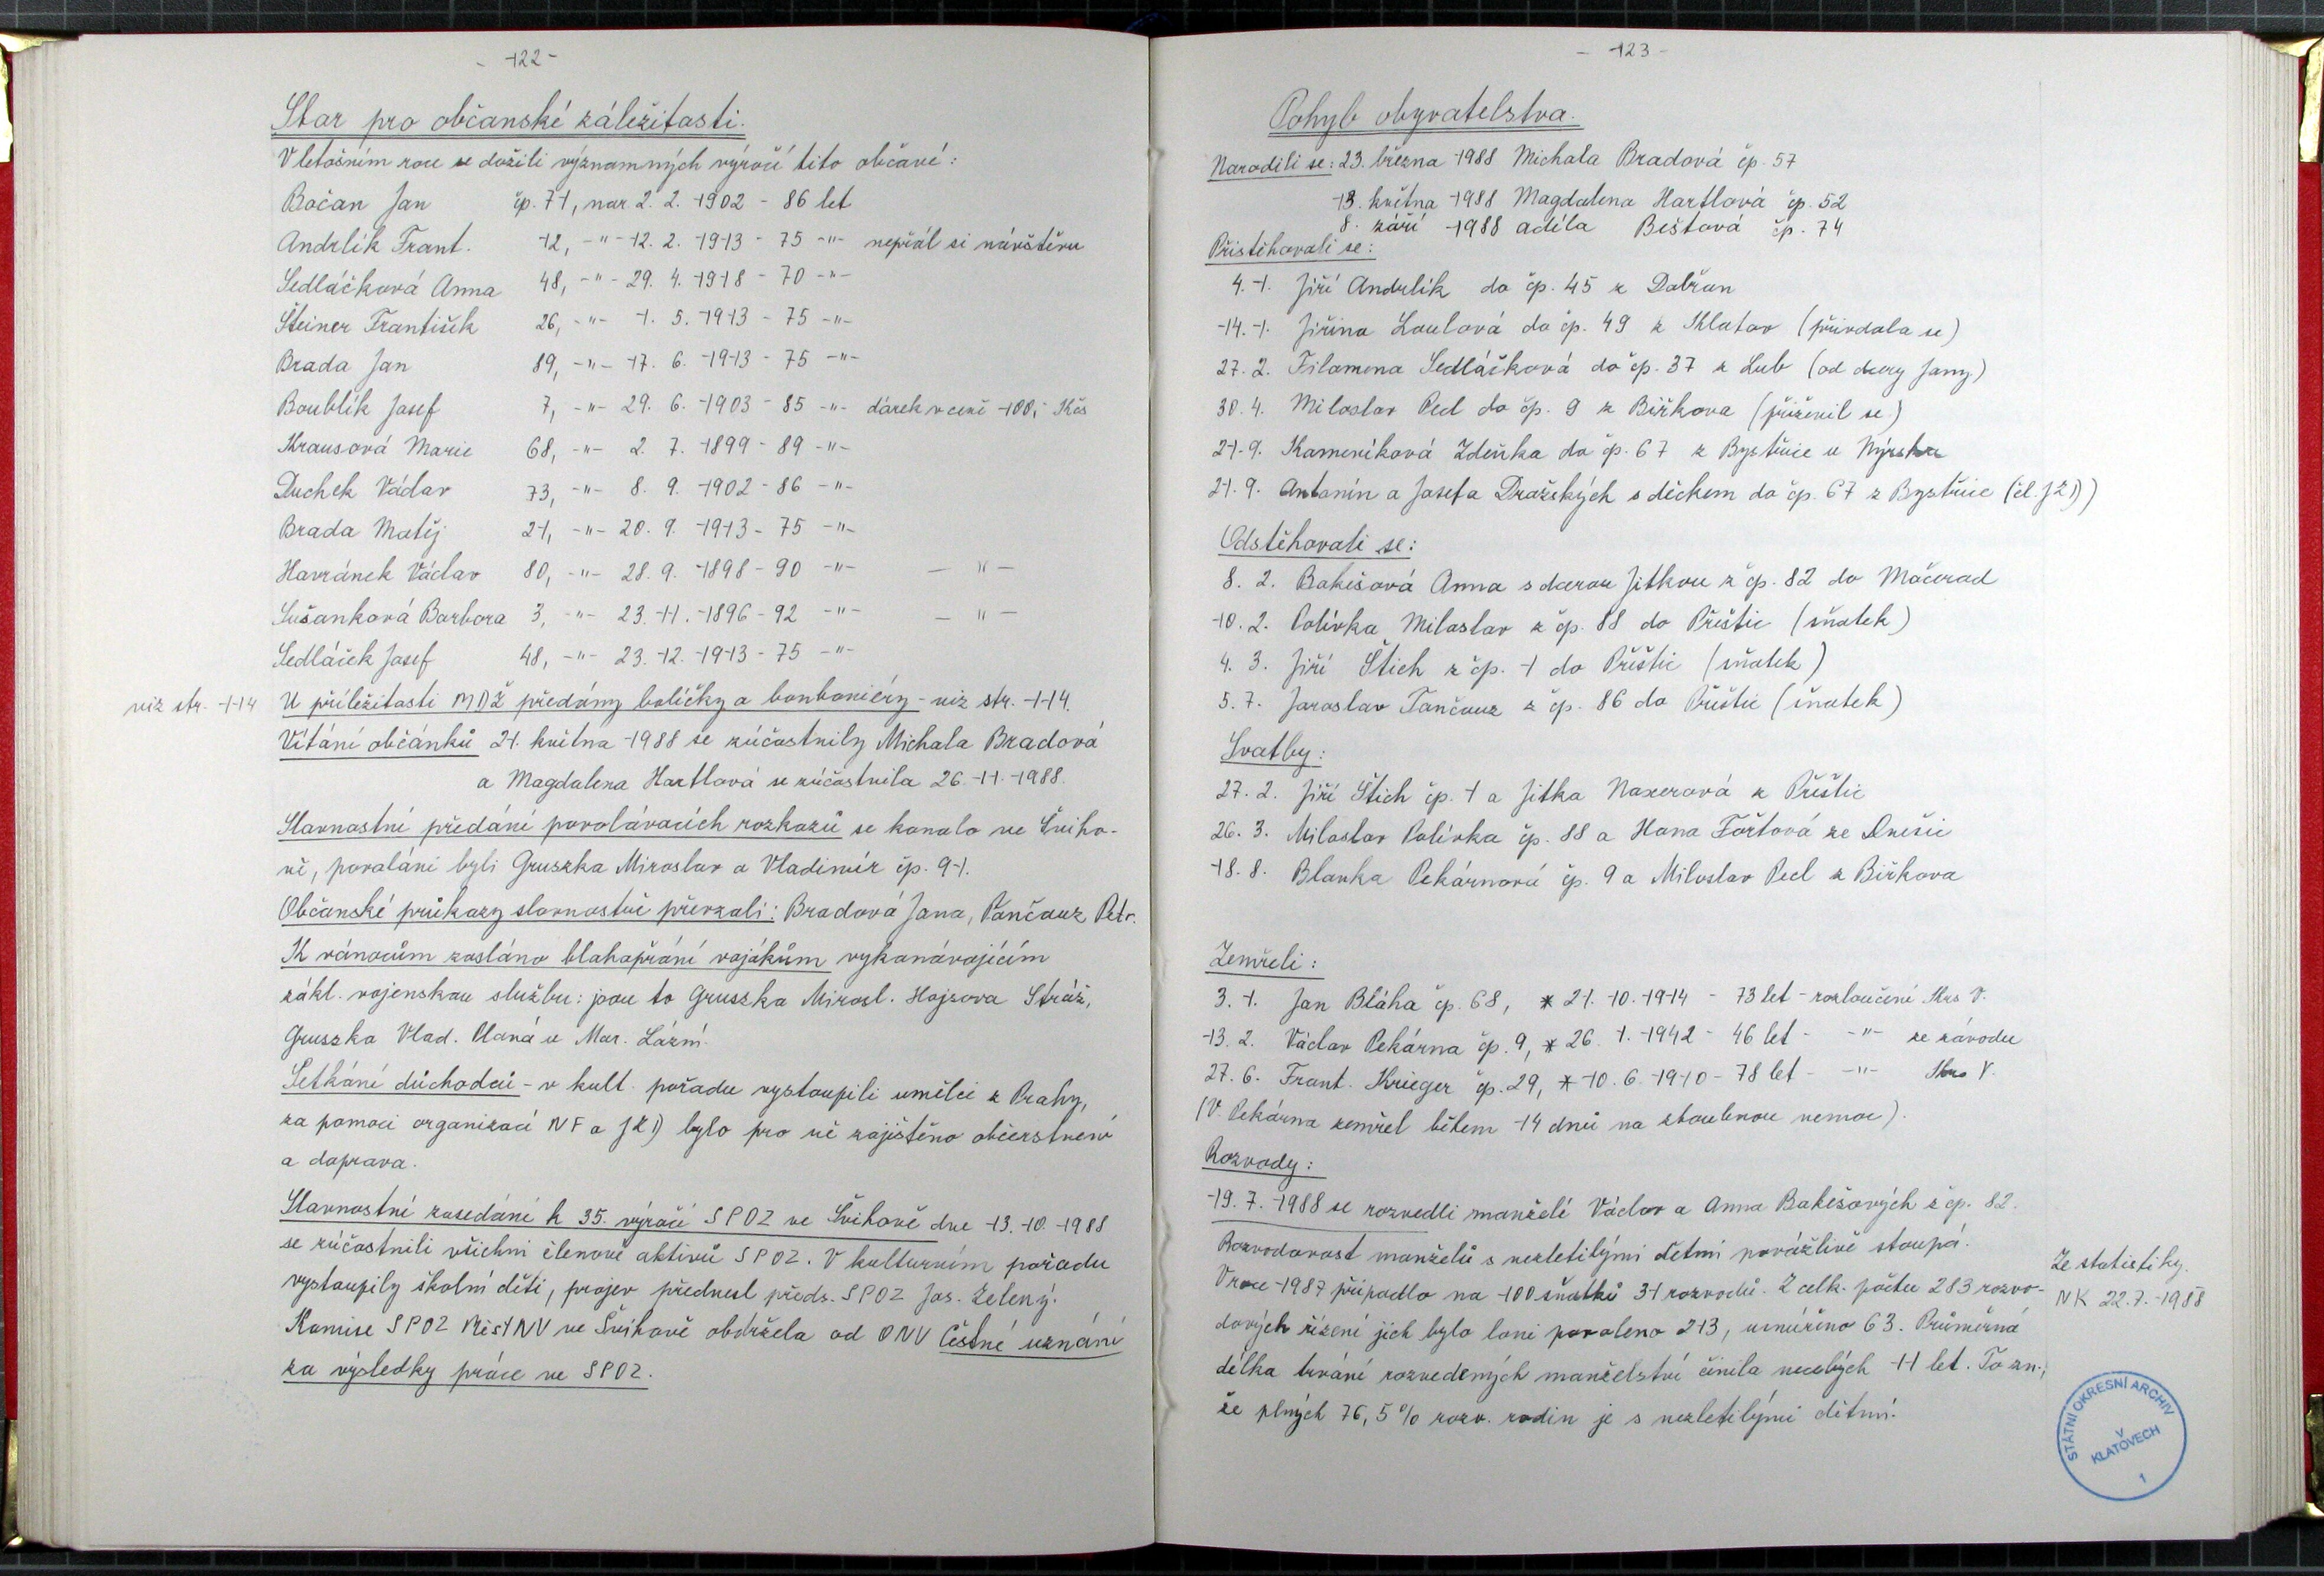 - 122 -
Sbor pro občanské záležitosti.
V letošním roce se dožili významných výročí tito občané:
Bočan Jan čp. 71, nar. 2. 2. 1902 - 86 let
Andrlík Frant. 12, -"- 12. 2. 1913 - 75 -"- nepřál si návštěvu
Sedláčková Anna 48, -"- 29. 4. 1918 - 70 -"-
Steiner František 26, -"- 1. 5. 1913 - 75 -"-
Brada Jan 89, -"- 17. 6. 1913 - 75 -"-
Boublík Josef 7, -"- 29. 6. 1903 - 85 -"- dárek v ceně 100,- Kčs
Krausová Marie 68, -"- 2. 7. 1899 - 89 -"-
Duchek Václav 73, -"- 8. 9. 1902 - 86 -"-
Brada Matěj 21, -"- 20. 9. 1913 - 75 -"-
Havránek Václav 80, -"- 28. 9. 1898 - 90 -"- — " —
Sušanková Barbora 3, -"- 23. 11. 1896 - 92 -"- — " —
Sedláček Josef 48, -"- 23. 12. 1913 - 75 -"-
viz str. 114
U příležitosti MDŽ předány balíčky a bonboniéry - viz str. 114.
Vítání občánků 21. května 1988 se zúčastnily Michala Bradová
a Magdalena Hartlová se zúčastnila 26. 11. 1988.
Slavnostní předání povolávacích rozkazů se konalo ve Šviho-
ně, povoláni byli Gruszka Miroslav a Vladimír čp. 91.
Občanské průkazy slavnostně převzali: Bradová Jana, Pančauz Petr.
K vánocům zasláno blahopřání vojákům vykonávajícím
zákl. vojenskou službu: jsou to Gruszka Mirosl. Hojsova Stráž,
Gruszka Vlad. Planá u Mar. Lázní.
Setkání důchodců - v kult. pořadu vystoupili umělci z Prahy,
za pomoci organizací NF a JZD bylo pro ně zajištěno občerstvení
a doprava.
Slavnostní zasedání k 35. výročí SPOZ ve Švihově dne 13. 10. 1988
se zúčastnili všichni členové aktivů SPOZ. V kulturním pořadu
vystoupily školní děti, projev přednesl předs. SPOZ Jos. Zelený.
Komise SPOZ MěstNV ve Švihově obdržela od ONV Čestné uznání
za výsledky práce ve SPOZ.
- 123 -
Pohyb obyvatelstva.
Narodili se: 23. března 1988 Michala Bradová čp. 57
13. května 1988 Magdalena Hartlová čp. 52
8. září 1988 Adéla Beštová čp. 74
Přistěhovali se:
4. 1. Jiří Andrlík do čp. 45 z Dobřan
14. 1. Jiřina Loulová do čp. 49 z Klatov (přivdala se)
27. 2. Filomena Sedláčková do čp. 37 z Lub (od dcery Jany)
30. 4. Miloslav Pecl do čp. 9 z Biřkova (přiženil se)
21. 9. Kameníková Zdeňka do čp. 67 z Bystřice u Nýrska
21. 9. Antonín a Josefa Dražských s děckem do čp. 67 z Bystřice (čl. JZD)
Odstěhovali se:
8. 2. Bakešová Anna s dcerou Jitkou z čp. 82 do Močerad
10. 2. Polívka Miloslav z čp. 88 do Přeštic (sňatek)
4. 3. Jiří Štich z čp. 1 do Přeštic (sňatek)
5. 7. Jaroslav Tančouz z čp. 86 do Přeštic (sňatek)
Svatby:
27. 2. Jiří Štich čp. 1 a Jitka Naxerová z Přeštic
26. 3. Miloslav Polívka čp. 88 a Hana Fořtová ze Dnešic
18. 8. Blanka Pekárnová čp. 9 a Miloslav Pecl z Biřkova
Zemřeli:
3. 1. Jan Bláha čp. 68, * 21. 10. 1914 - 73 let - rozloučení Krs V.
13. 2. Václav Pekárna čp. 9, * 26. 1. 1942 - 46 let - -"- ze závodu
27. 6. Frant. Krieger čp. 29, * 10. 6. 1910 - 78 let - -"- Krs V.
(V. Pekárna zemřel během 14 dnů na zhoubnou nemoc).
Rozvody:
19. 7. 1988 se rozvedli manželé Václav a Anna Bakešových z čp. 82.
Rozvodovost manželů s nezletilými dětmi povážlivě stoupá.
V roce 1987 připadlo na 100 sňatků 31 rozvodů. Z celk. počtu 283 rozvo-
dových řízení jich bylo loni povoleno 213, usmířeno 63. Průměrná
délka trvání rozvedených manželství činila necelých 11 let. To zn.,
že plných 76,5 % rozv. rodin je s nezletilými dětmi.
Ze statistiky.
NK 22. 7. 1988
STÁTNÍ OKRESNÍ ARCHIV
V
KLATOVECH
1